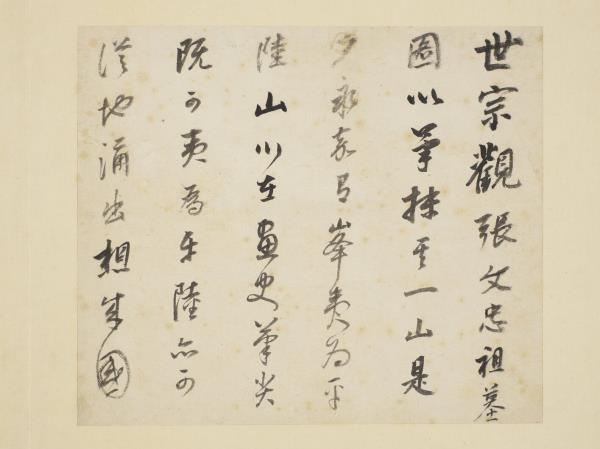 世宗觀張文忠祖墓
圖以筆抹其一山是
夕永嘉有峯夷為平
陸山川在畫史筆尖
既可夷為平陸亦可
從地涌出想朱國